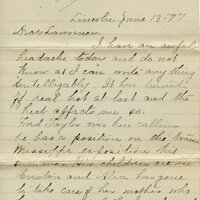 Lincoln June 18-97
Dear Lawrence,
I have an awful
headache today and do not
know as I can write any thing
intelligably. It has turned
off real hot at last and the
heat affects me so.
Fred Taylor was here called
he has a position on the Trans
Mississippi exposition this
summer. His children are in
and Alice has gone
to take care of her mother who